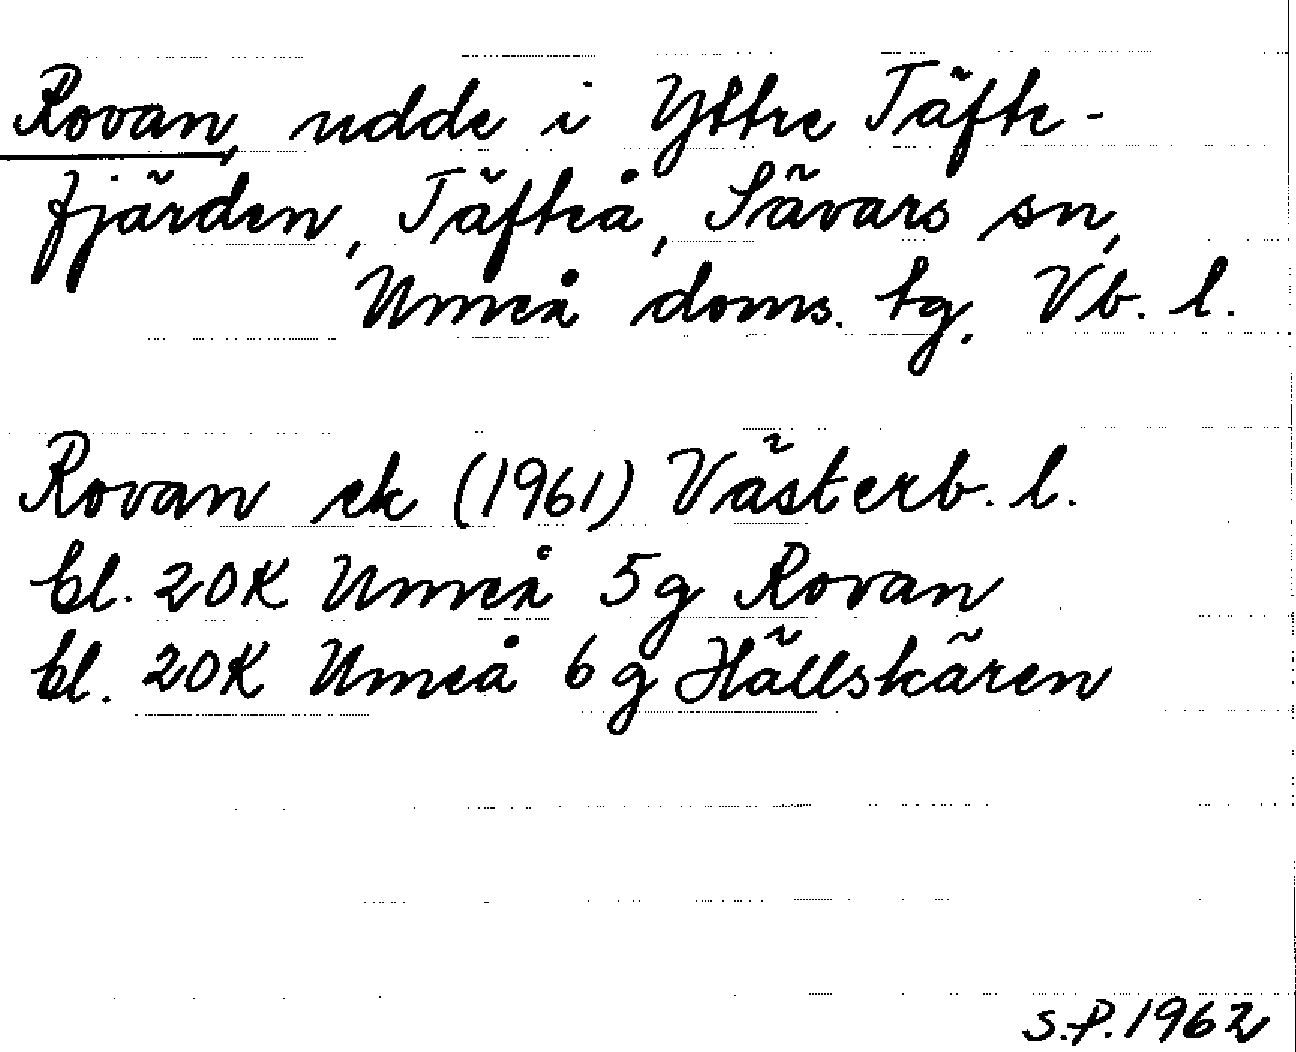 Rovan, udde i Yttre Täfte-
fjärden, Täfteå, Sävars sn,
Umeå doms. tg. Vb. l.
Rovan ek (1961) Västerb. l.
bl. 20K Umeå 5g Rovan
bl. 20K Umeå 6g Hällskären
S.P. 1962